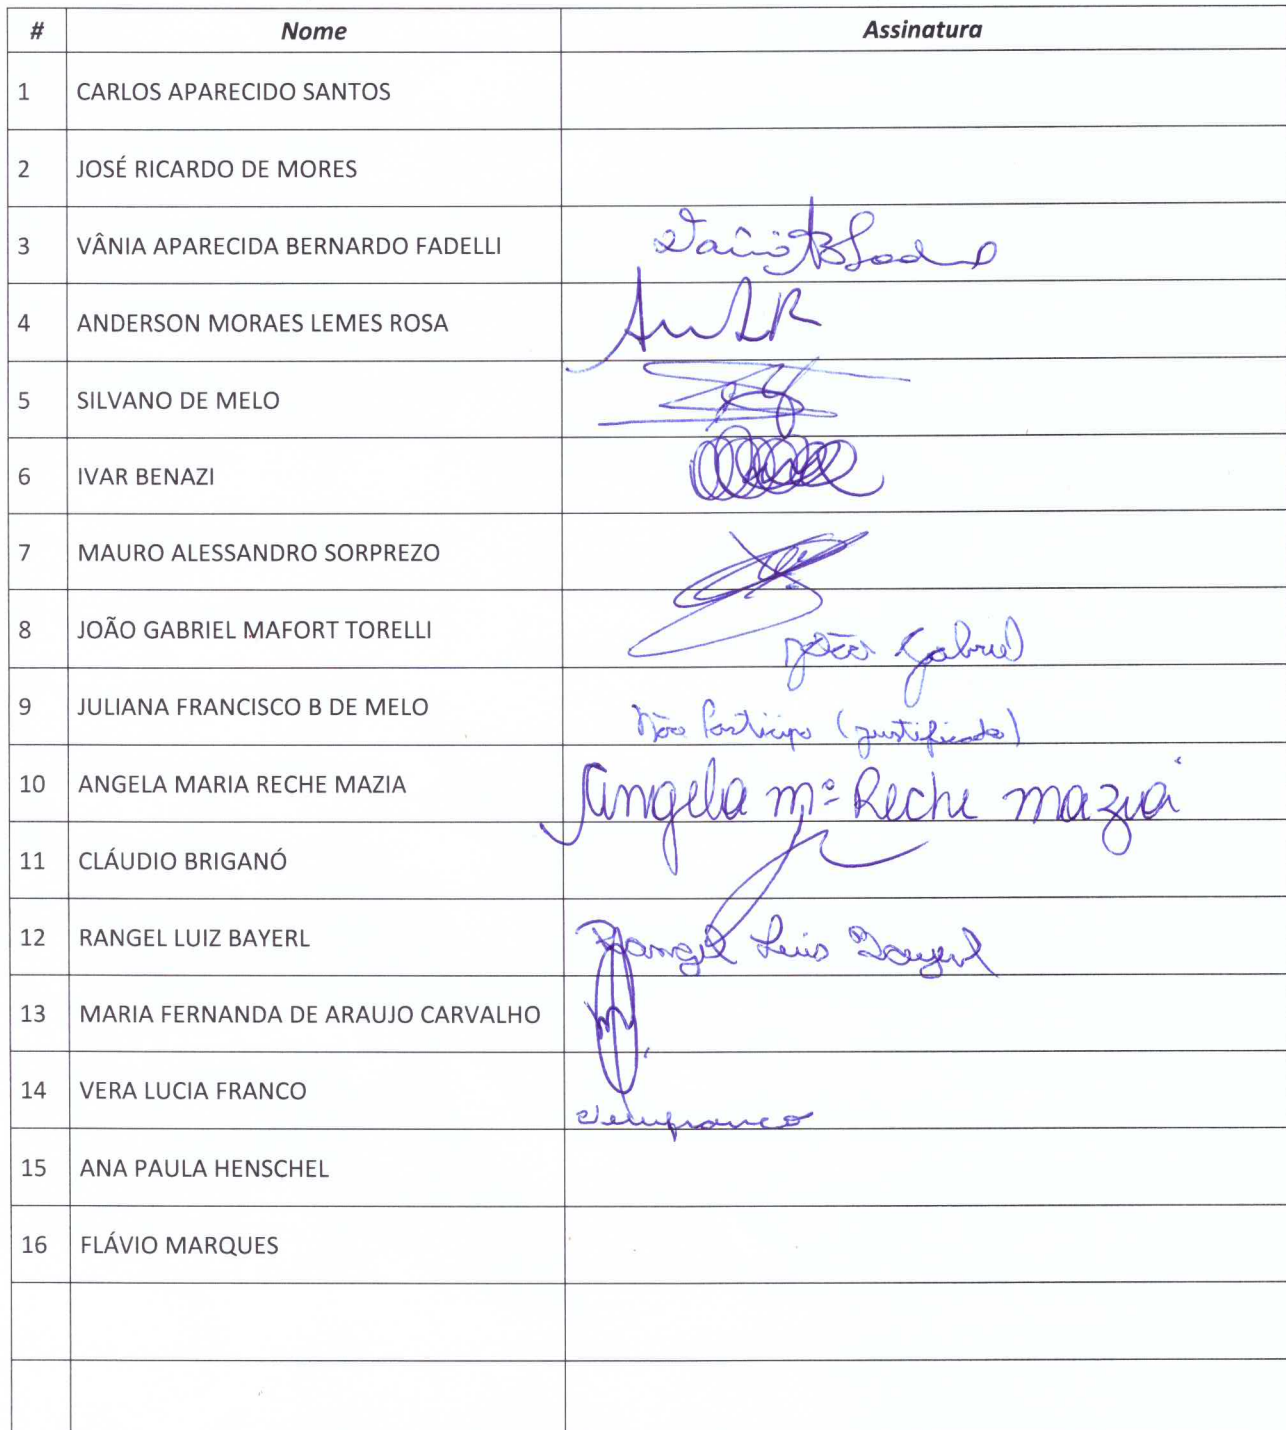 # Nome Assinatura
1 CARLOS APARECIDO SANTOS
2 JOSÉ RICARDO DE MORES
3 VÂNIA APARECIDA BERNARDO FADELLI
4 ANDERSON MORAES LEMES ROSA
5 SILVANO DE MELO
6 IVAR BENAZI
7 MAURO ALESSANDRO SORPREZO
8 JOÃO GABRIEL MAFORT TORELLI João Gabriel
9 JULIANA FRANCISCO B DE MELO Não (justificado)
10 ANGELA MARIA RECHE MAZIA Angela Mª Reche Mazia
11 CLÁUDIO BRIGANÓ
12 RANGEL LUIZ BAYERL Rangel Luis Bayerl
13 MARIA FERNANDA DE ARAUJO CARVALHO
14 VERA LUCIA FRANCO
15 ANA PAULA HENSCHEL
16 FLÁVIO MARQUES